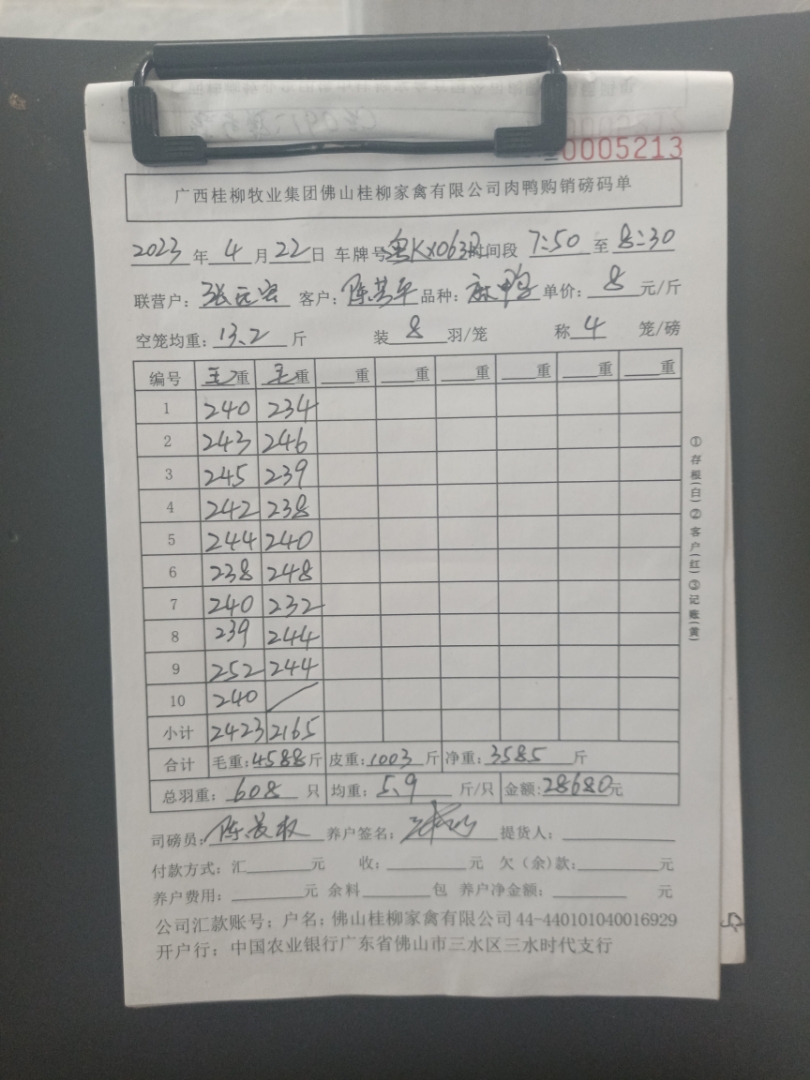 0005213
广西桂柳牧业集团佛山桂柳家禽有限公司肉鸭购销磅码单
2023 年 4 月 22 日 车牌号 粤KX063 时间段 7:50 至 8:30
联营户: 张 客户: 陈 品种: 鸭 单价: 8 元/斤
空笼均重: 13.2 斤 装 8 羽/笼 称 4 笼/磅
编号 毛重 毛重 重 重 重 重 重 重
1 240 234
2 243 246
3 245 239
4 242 238
5 244 240
6 238 248
7 240 232
8 239 244
9 252 244
10 240 /
小计 2423 2165
合计 毛重: 4588 斤 皮重: 1003 斤 净重: 3585 斤
总羽重: 608 只 均重: 5.9 斤/只 金额: 28680 元
司磅员: 陈 养户签名: 提货人:
付款方式: 汇 元 收: 元 欠(余)款: 元
养户费用: 元 余料 包 养户净金额: 元
公司汇款账号: 户名: 佛山桂柳家禽有限公司 44-440101040016929
开户行: 中国农业银行广东省佛山市三水区三水时代支行
①存根(白)②客户(红)③记账(黄)